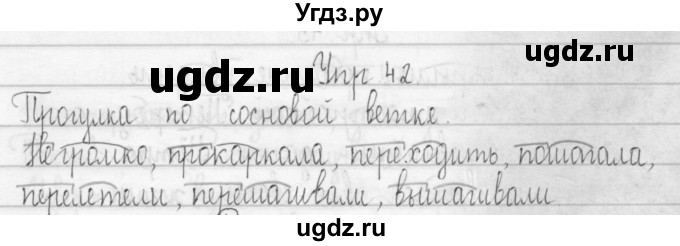 Угдз.ру
ugdz.ru
Упр 42
ugdz.ru
Прогулка по сосновой ветке.
Негромко, прокаркала, переходить, пошагала,
перелетели, перешагивали, вышагивали
ugdz.ru
ugdz.ru